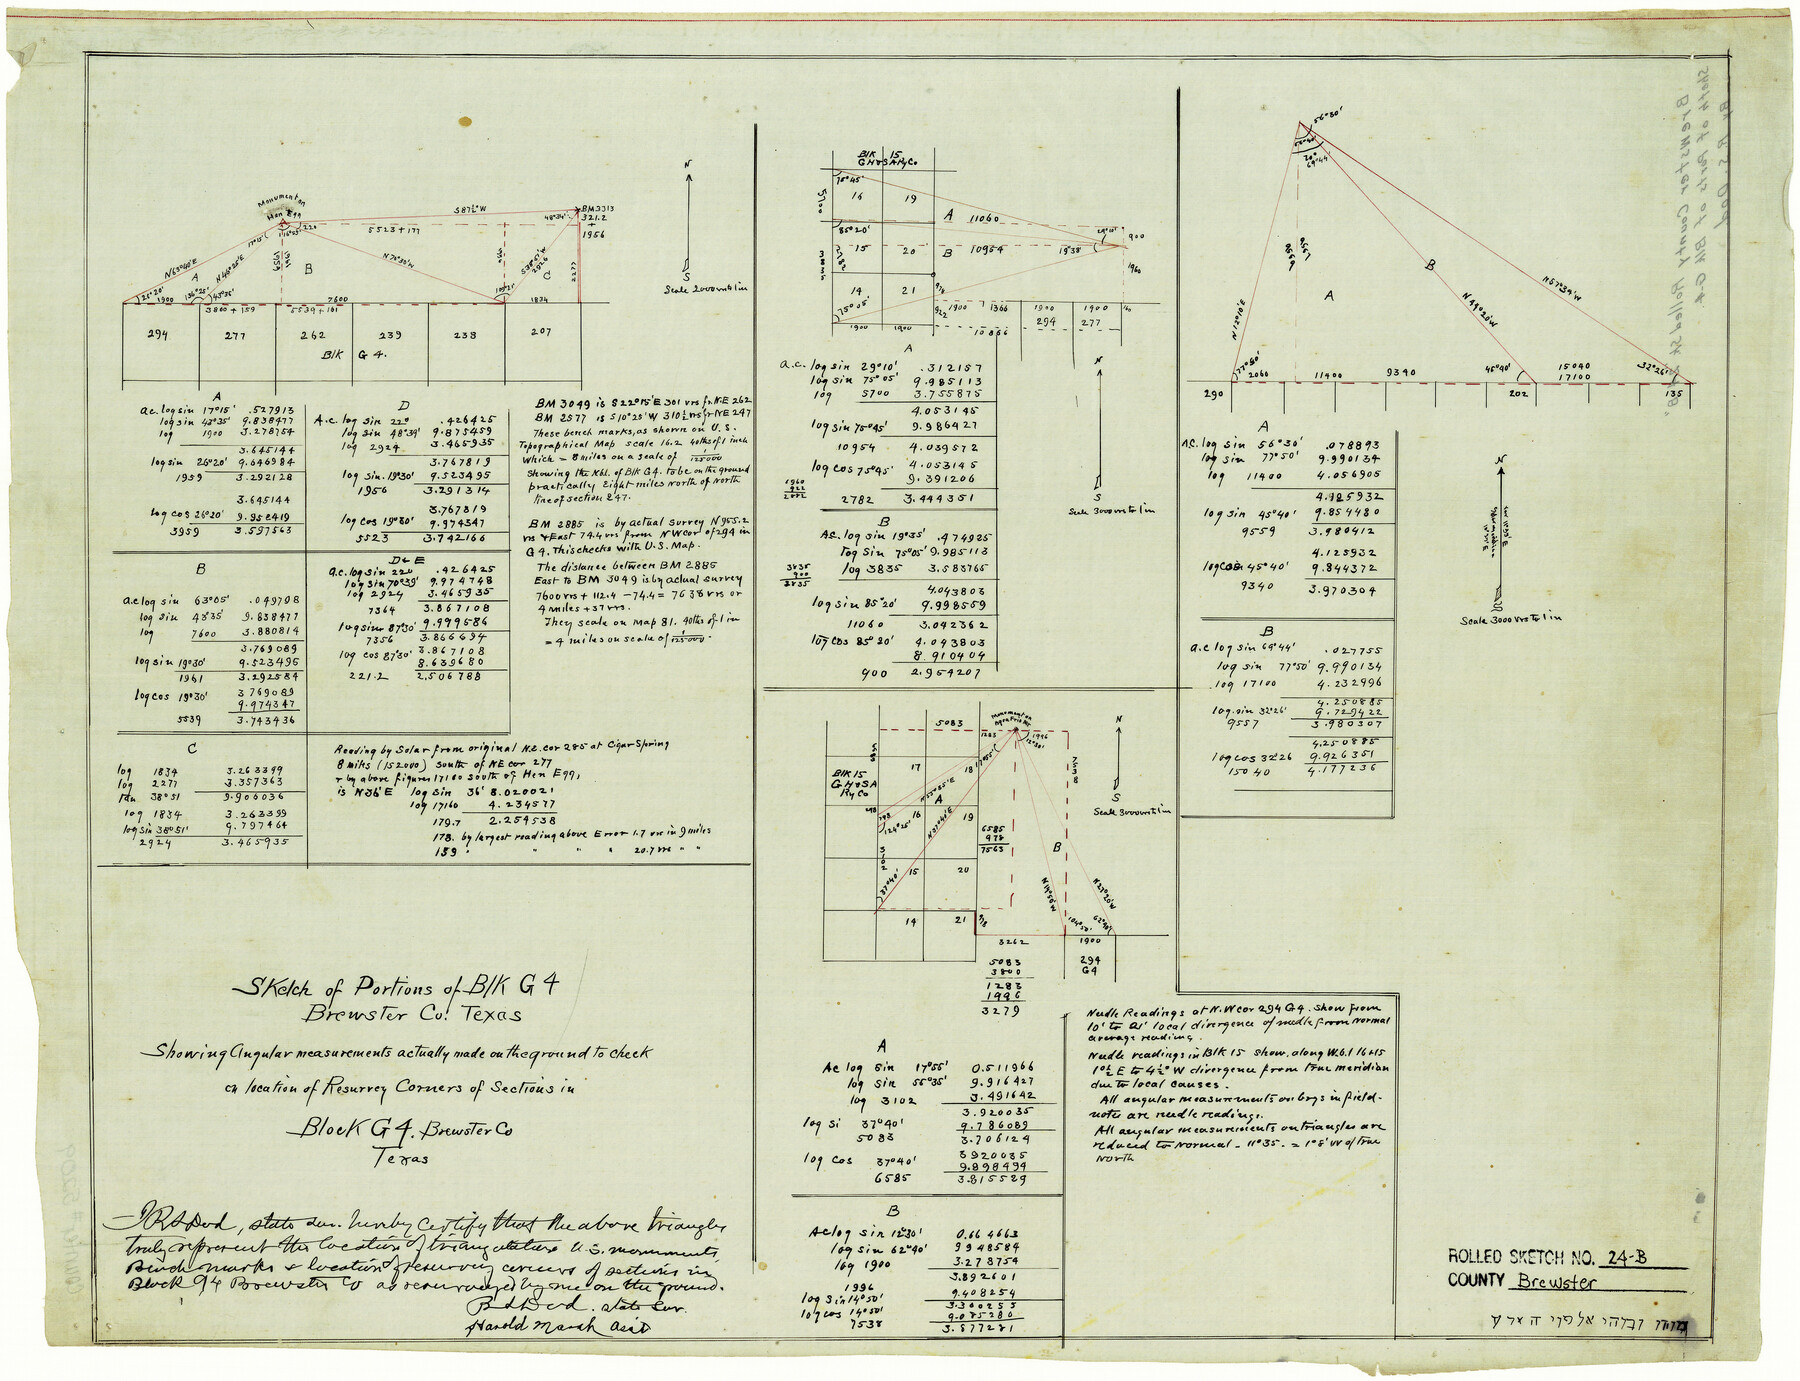 Monument on
Hen Egg
S 87½° W
BM 3313
321.2
+
1956
48°34'
5523 + 177
17°15'
N 63°40' E
N 48°25' E
N 70°30' W
A
B
C
26°20'
1900
136°25'
43°35'
7600
1834
2277
3800 + 159
5539 + 161
294
277
262
239
238
207
Blk G 4.
N
S
Scale 2000 vrs to 1 in
A
a.c. log sin 17°15' .527913
log sin 43°35' 9.838477
log 1900 3.278754
3.645144
log sin 26°20' 9.646984
1959 3.292128
3.645144
log cos 26°20' 9.952419
3959 3.597563
D
A.c. log sin 22° .426425
log sin 48°39' 9.875459
log 2924 3.465935
3.767819
log sin 19°30' 9.523495
1956 3.291314
3.767819
log cos 19°30' 9.974347
5523 3.742166
BM 3049 is S 22°15' E 301 vrs fr. N.E 262
BM 2577 is S 10°25' W 310½ vrs fr NE 247
These bench marks, as shown on U.S.
Topographical Map scale 16.2 40ths of 1 inch
Which = 8 miles on a scale of 1/125000
Showing the Nbl. of Blk G4. to be on the ground
practically Eight miles North of North
line of section 247.
BM 2885 is by actual survey N 955.2
vrs & East 74.4 vrs from N W cor of 294 in
G 4. This checks with U.S. Map.
The distance between BM 2885
East to BM 3049 is by actual survey
7600 vrs + 112.4 - 74.4 = 7638 vrs or
4 miles + 37 vrs.
They scale on Map 81. 40ths of 1 in
= 4 miles on scale of 1/125000.
B
a.c log sin 63°05' .049798
log sin 43°35' 9.838477
log 7600 3.880814
3.769089
log sin 19°30' 9.523495
1961 3.292584
log cos 19°30' 3.769089
9.974347
5539 3.743436
D & E
a.c. log sin 22° .426425
log sin 70°39' 9.974748
log 2924 3.465935
7364 3.867108
log sine 87°30' 9.999586
7356 3.866694
log cos 87°30' 3.867108
8.639680
221.2 2.506788
C
log 1834 3.263399
log 2277 3.357363
tan 38°51 9.906036
log 1834 3.263399
log sin 38°51' 9.797464
2924 3.465935
Reading by Solar from original N.E. cor 285 at Cigar Spring
8 miles (152000) south of NE cor 277
& by above figures 17160 south of Hen Egg,
is N 36' E log sin 36' 8.020021
log 17160 4.234577
179.7 2.254538
178. by largest reading above Error 1.7 vrs in 9 miles
159 " " " " 20.7 vrs " "
Sketch of Portions of Blk G 4
Brewster Co. Texas
Showing Angular measurements actually made on the ground to check
on location of Resurvey Corners of Sections in
Block G 4. Brewster Co
Texas
I R S Dod, state sur. hereby certify that the above triangles
truly represent the location of triangulation U.S. monuments
Bench marks & location of resurvey corners of sections in
Block G4 Brewster Co as resurveyed by me on the ground.
R S Dod. state sur.
Harold Marsh Asst
Blk 15
GH&SA Ry Co
75°45'
5700
16
19
A
11060
85°20'
15
20
B
10954
29°10'
19°35'
900
1960
14
21
978
922
75°05'
1900
1900
1900
1366
1900
1900
40
294
277
10866
N
S
Scale 3000 vrs to 1 in
A
a.c. log sin 29°10' .312157
log sin 75°05' 9.985113
log 5700 3.755875
4.053145
log sin 75°45' 9.986427
10954 4.039572
log cos 75°45' 4.053145
9.391206
2782 3.444351
1960
922
2882
B
Ac. log sin 19°35' .474925
log sin 75°05' 9.985113
log 3835 3.583765
4.043803
log sin 85°20' 9.998559
11060 3.042362
log cos 85°20' 4.043803
8.910404
900 2.954207
2935
900
3835
5083
Monument on
Agua Fria Mt
1283
1996
12°30'
17°55'
7538
Blk 15
G H & SA
Ry Co
17
18
N 55°35' E
A
124°25'
16
N 37°40' E
19
6585
978
7563
B
37°40'
15
20
N 14°50' W
N 27°20' W
14
21
978
104°50'
62°40'
3262
1900
294
G4
5083
3800
1283
1996
3279
N
S
Scale 3000 vrs to 1 in
A
Ac log Sin 17°55' 0.511966
log sin 55°35' 9.916427
log 3102 3.491642
3.920035
log si 37°40' 9.786089
5083 3.706124
log cos 37°40' 3.920035
9.898494
6585 3.815529
B
Ac log sin 12°30' 0.664663
log sin 62°40' 9.948584
log 1900 3.278754
3.892601
1996
log sin 14°50' 9.408254
3.300255
log cos 14°50' 9.985280
7538 3.877281
Needle Readings at N.W cor 294 G4. show from
10' to 21' local divergence of needle from normal
average reading.
Needle readings in Blk 15 show, along W.b.l 16 & 15
1°½ E to 4½° W divergence from true meridian
due to local causes.
All angular measurements on brgs in field-
notes are needle readings.
All angular measurements on triangles are
reduced to normal - 11°35. = 1°8' W of true
North
56°30'
69°44'
N 12°10' E
9559
9557
A
B
N 44°20' W
N 57°34' W
77°50'
2060
11400
9340
45°40'
15040
17100
32°26'
290
202
135
A
A.C. log sin 56°30' .078893
log sin 77°50' 9.990134
log 11400 4.056905
4.125932
log sin 45°40' 9.854480
9559 3.980412
4.125932
log cos 45°40' 9.844372
9340 3.970304
B
a.c log sin 69°44' .027755
log sin 77°50' 9.990134
log 17100 4.232996
4.250885
log. sin 32°26' 9.729422
9557 3.980307
4.250885
log cos 32°26 9.926351
15040 4.177236
N
S
Scale 3000 vrs to 1 in
ROLLED SKETCH NO. 24-B
COUNTY Brewster